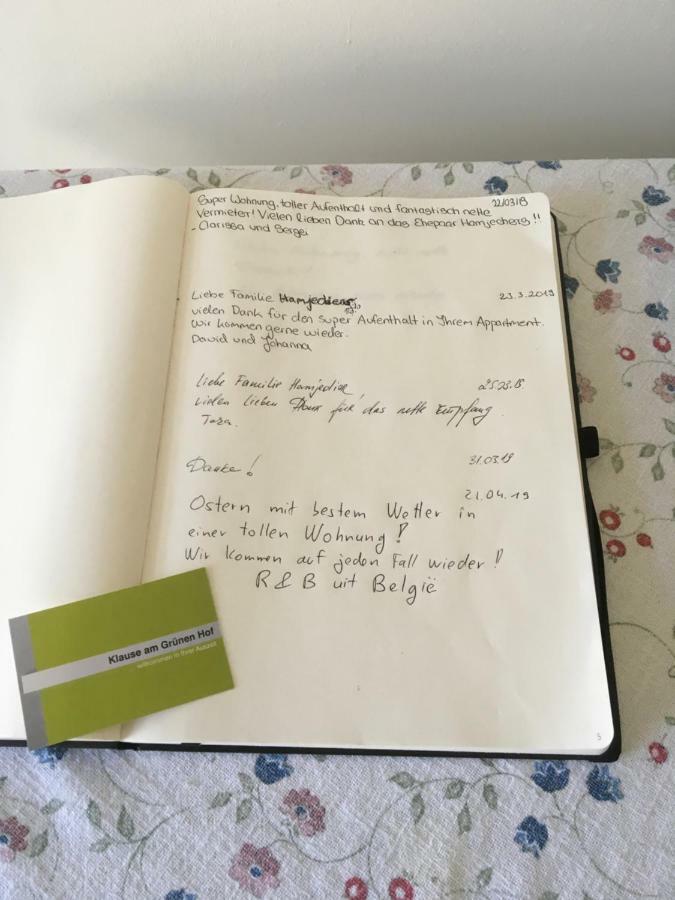 Super Wohnung, toller Aufenthalt und fantastisch nette 22/03/19
Vermieter! Vielen lieben Dank an das Ehepaar Hamjediers!!
- Clarissa und Sergej
Liebe Familie Hamjediers, 23.3.2019
vielen Dank für den super Aufenthalt in Ihrem Appartment.
Wir kommen gerne wieder.
David und Johanna
Liebe Familie Hamjedier,
vielen lieben Dank für das nette Empfang.
Danke! 31.03.19
21.04.19
Ostern mit bestem Wetter in
einer tollen Wohnung!
Wir kommen auf jeden Fall wieder!
R & B uit België
Klause am Grünen Hof
willkommen in Ihrer Auszeit
5